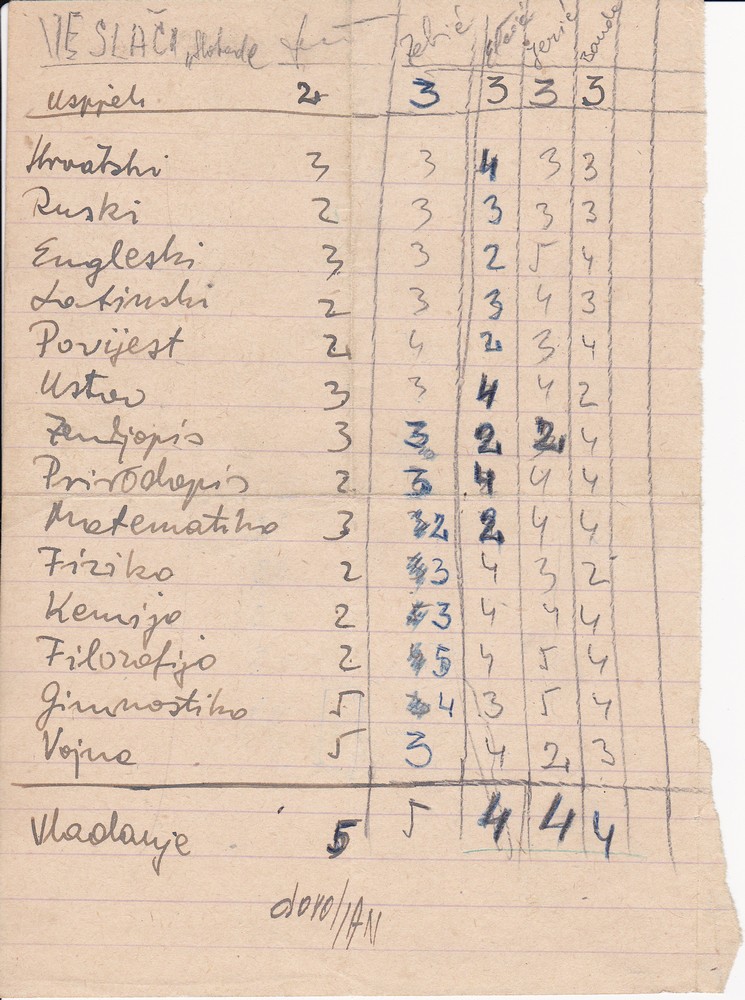 VESLAČI "Slobode Zebić Jerić Banda
uspjeh 2 3 3 3 3
Hrvatski 3 3 4 3 3
Ruski 2 3 3 3 3
Engleski 3 3 2 5 4
Latinski 2 3 3 4 3
Povijest 2 4 2 3 4
Ustav 3 3 4 4 2
Zemljopis 3 3 2 2 4
Prirodopis 2 3 4 4 4
Matematika 3 2 2 4 4
Fizika 2 3 4 3 2
Kemija 2 3 4 4 4
Filozofija 2 5 4 5 4
Gimnastika 5 4 3 5 4
Vojna 5 3 4 2 3
Vladanje 5 5 4 4 4